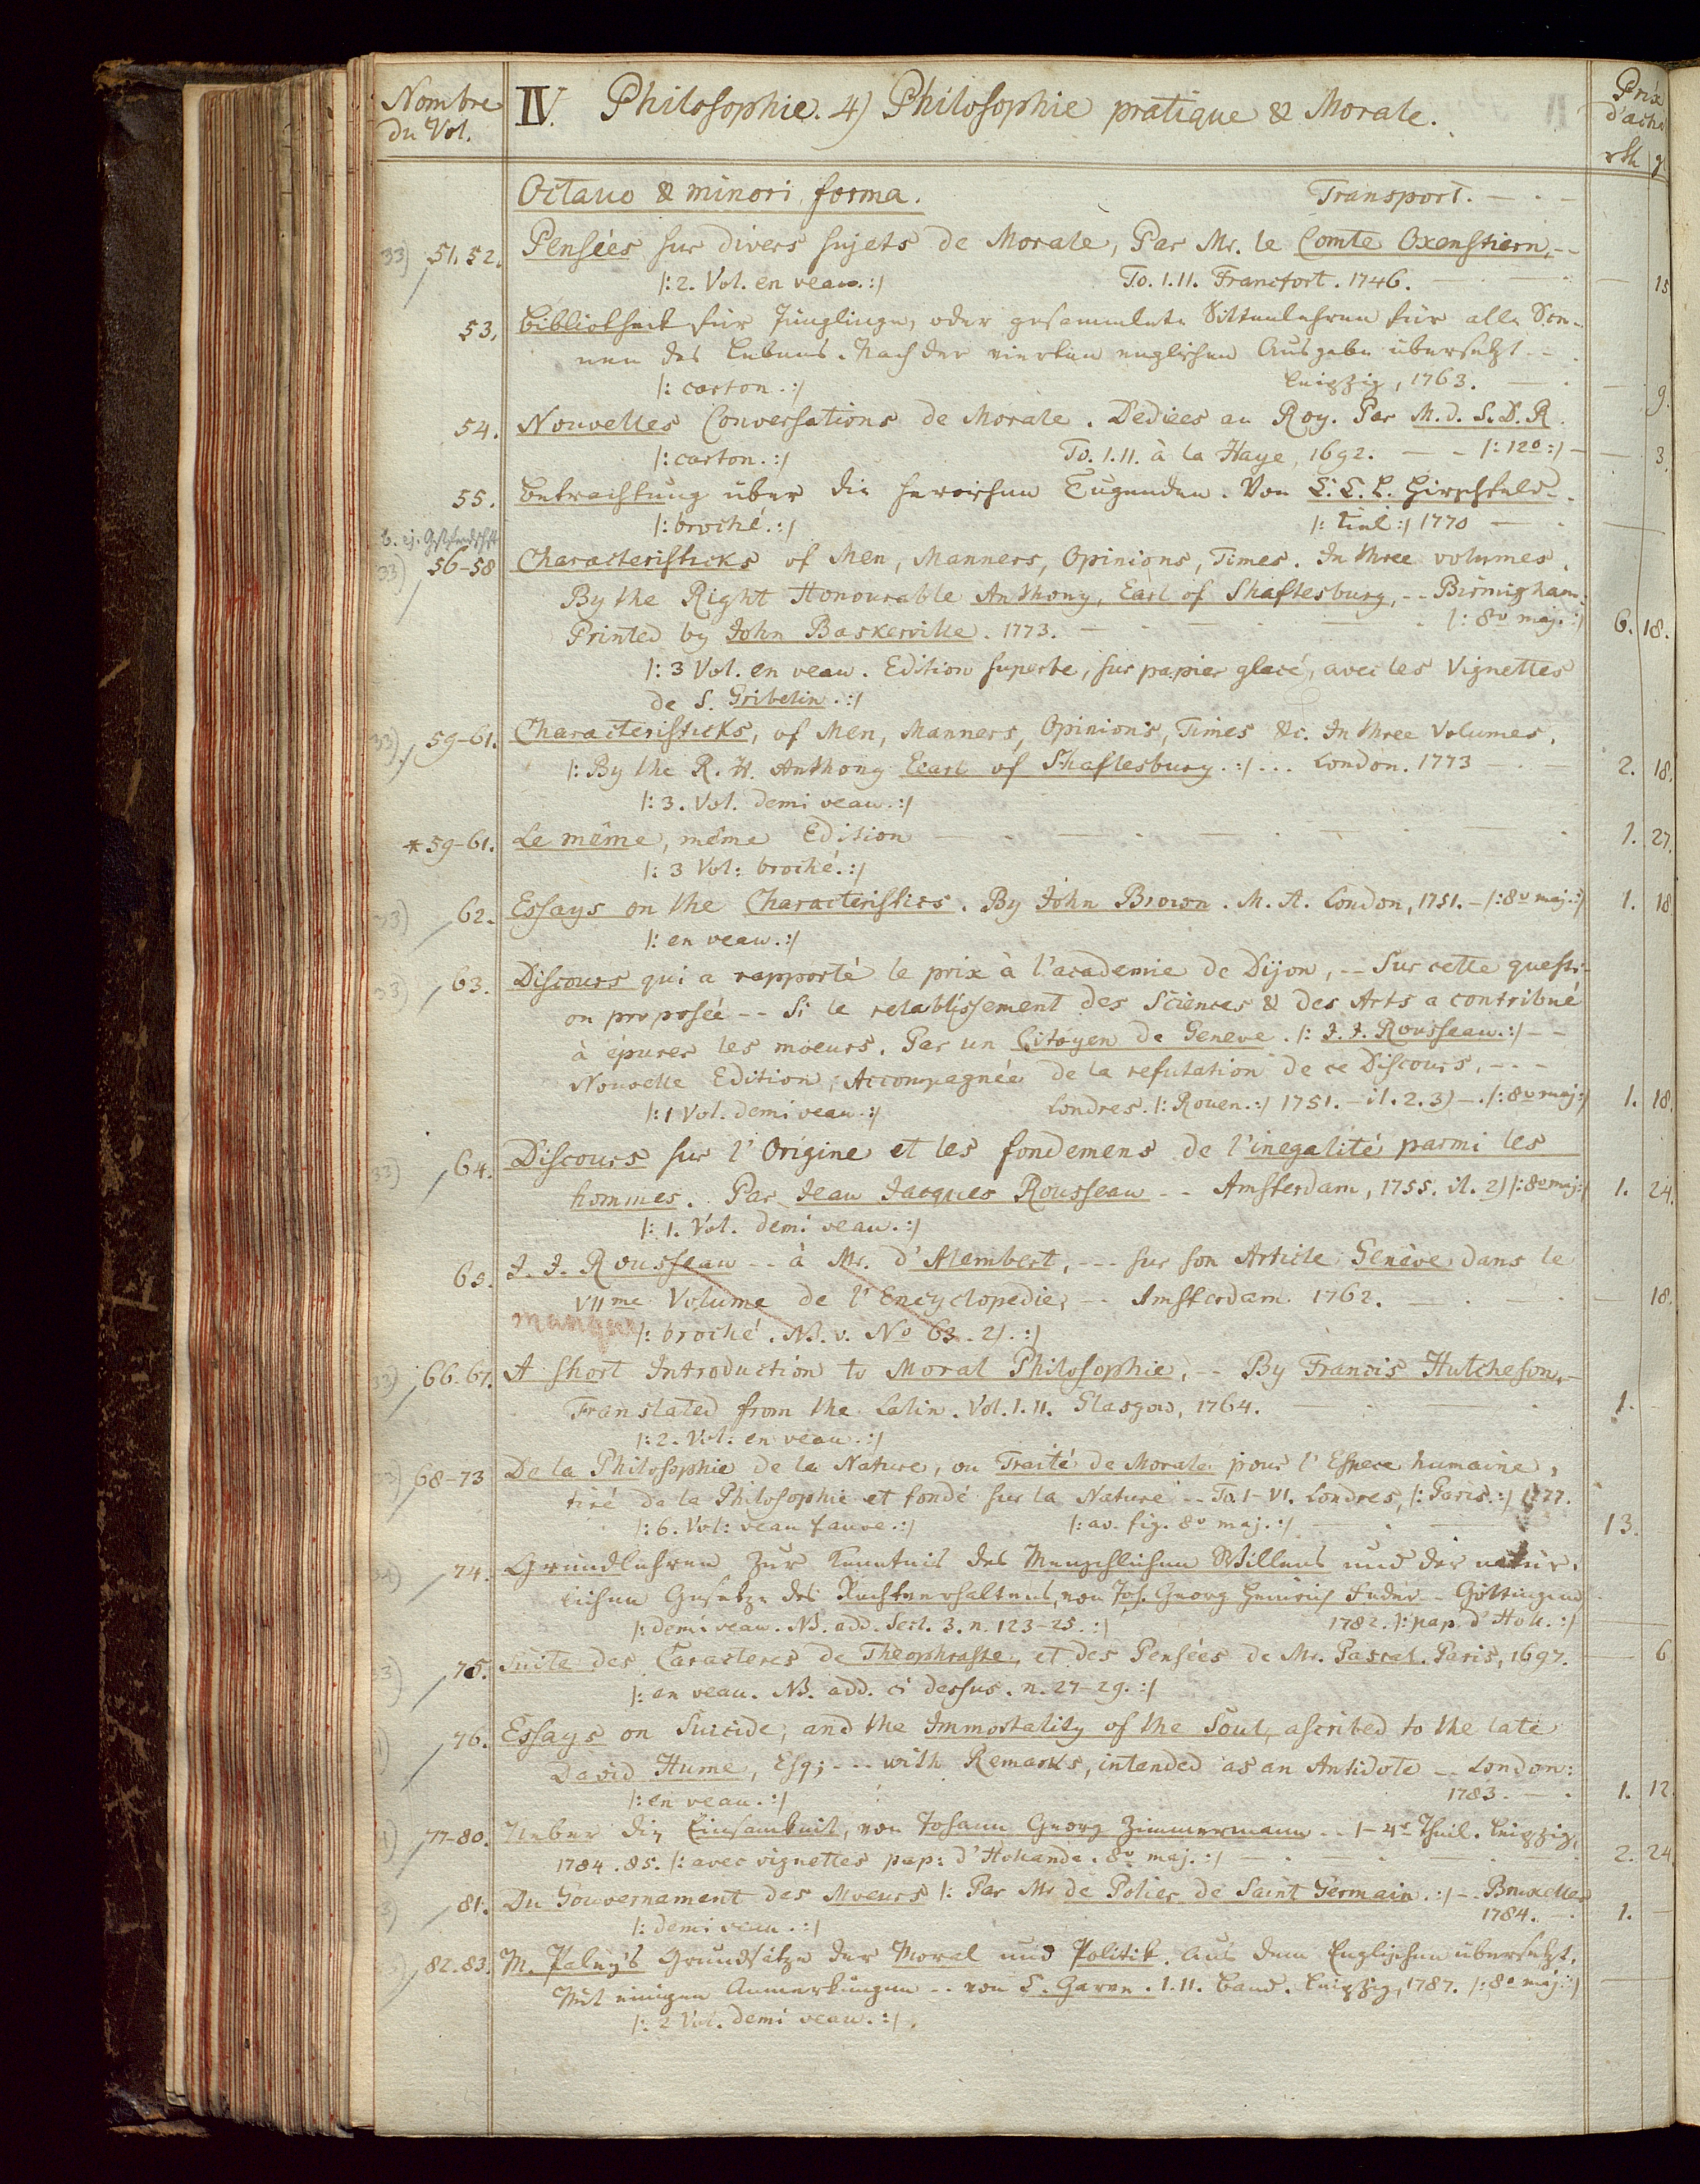 Nombre du Vol.
IV. Philosophie. 4) Philosophie pratique & Morale.
Prix d'acha
rth g
Octavo & minori forma. Transport. — . —
33) 51. 52. Pensées sur divers sujets de Morale, Par Mr. le Comte Oxenstiern, --
|: 2. Vol. en veau. :| To. I. II. Francfort. 1746. — 15
53. Bibliotheck für Jünglinge, oder gesammlete Sittenlehren für alle Sce-
nen des Lebens. Nach der vierten englischen Ausgabe übersetzt --
|: carton. :| Leipzig, 1763. — 9.
54. Nouvelles Conversations de Morale. Dediées au Roy. Par M. d. S. D. R.
|: carton. :| To. I. II. à la Haye, 1692. — - |: 12o :| — 3.
55. Betrachtung über die heroischen Tugenden. Von C. C. L. Hirschfeld -.
|: broché. :| |: Kiel :| 1770 — —
33) 56-58 Characteristicks of Men, Manners, Opinions, Times. In three volumes.
By the Right Honourable Anthony, Earl of Shaftesbury, -- Birmigham:
Printed by John Baskerville. 1773. — |: 8o maj. :| 6. 18.
|: 3 Vol. en veau. Edition superbe, sur papier glacé, avec les Vignettes
de S. Gribelin. :|
33) 59-61. Characteristicks, of Men, Manners, Opinions, Times &c. In three Volumes.
|: By the R. H. Anthony Eearl of Shaftesbury. :| ... London. 1773 — . — 2. 18.
|: 3. Vol. demi veau. :|
* 59-61. Le même, même Edition — 1. 27.
|: 3 Vol: broché. :|
33) 62. Essays on the Characteristics. By John Brown. M. A. London, 1751. - |: 8o maj. :| 1. 18
|: en veau. :|
33) 63. Discours qui a rapporté le prix à l'academie de Dijon, -- Sur cette questi-
on proposée -- Si le retablissement des Sciences & des Arts a contribué
à épurer les moeurs. Par un Citoyen de Geneve. |: J. J. Rousseau. :| --
Nouvelle Edition, Accompagnée de la refutation de ce Discours, - - -
|: 1 Vol. demi veau. :| Londres. |: Rouen. :| 1751. - il. 2. 3) -. |: 8o maj :| 1. 18.
33) 64. Discours sur l'Origine et les fondemens de l'inegalité parmi les
hommes. Par Jean Jacques Rousseau -- Amsterdam, 1755. il. 2) |: 8o maj :| 1. 24.
|: 1. Vol. demi veau. :|
65. J. J. Rousseau -- à Mr. d'Alembert, --- sur son Article Genève dans le
VIIme Volume de l'Encyclopedie, -- Amsterdam 1762. — . — 18.
manque |: broché. NB. v. No 63. 2). :|
33) 66. 67. A short Introduction to Moral Philosophie, -- By Francis Hutcheson, -
Translated from the Latin. Vol. I. II. Glasgow, 1764. — 1. -
|: 2. Vol: en veau. :|
33) 68-73 De la Philosophie de la Nature, ou Traité de Morale pour l'Espece humaine,
tiré de la Philosophie et fondé sur la Nature -- To. I-VI. Londres, |: Paris. :| 1777.
|: 6. Vol: veau fauve. :| |: av. fig. 8o maj. :| — 13.
74. Grundlehren zur Kenntnis des Menschlichen Willens und der natür-
lichen Gesetze des Rechtverhaltens, von Joh. Georg Heinrich Feder - Göttingen
|: demi veau. NB. add. Sect. 3. n. 123-25. :| 1782. |: pap. d'Holl. :| —
75. Suite des Caracteres de Theophraste, et des Pensées de Mr. Pascal. Paris, 1697. — 6
|: en veau. NB. add. ci dessus. n. 27-29. :|
76. Essays on Suicide, and the Immortality of the Soul, ascribed to the late
David Hume, Esq; --- with Remarks, intended as an Antidote -- London:
|: en veau. :| 1783. — . 1. 12
77-80. Ueber die Einsamkeit, von Johann Georg Zimmermann -- 1-4r Theil. Leipzig,
1784. 85. |: avec vignettes pap: d'Hollande. 8o maj. :| — 2. 24
81. Du Gouvernament des Moeurs |: Par Mr de Polier de Saint Germain. :| -- Bruxelles
|: demi veau. :| 1784. — 1. -
82. 83. M. Paley's Grundsätze der Moral und Politik. Aus dem Englischen übersetzt.
Mit einigen Anmerkungen -- von C. Garve. I. II. Band. Leipzig, 1787. |: 8o maj. :| —
|: 2 Vol. demi veau. :|